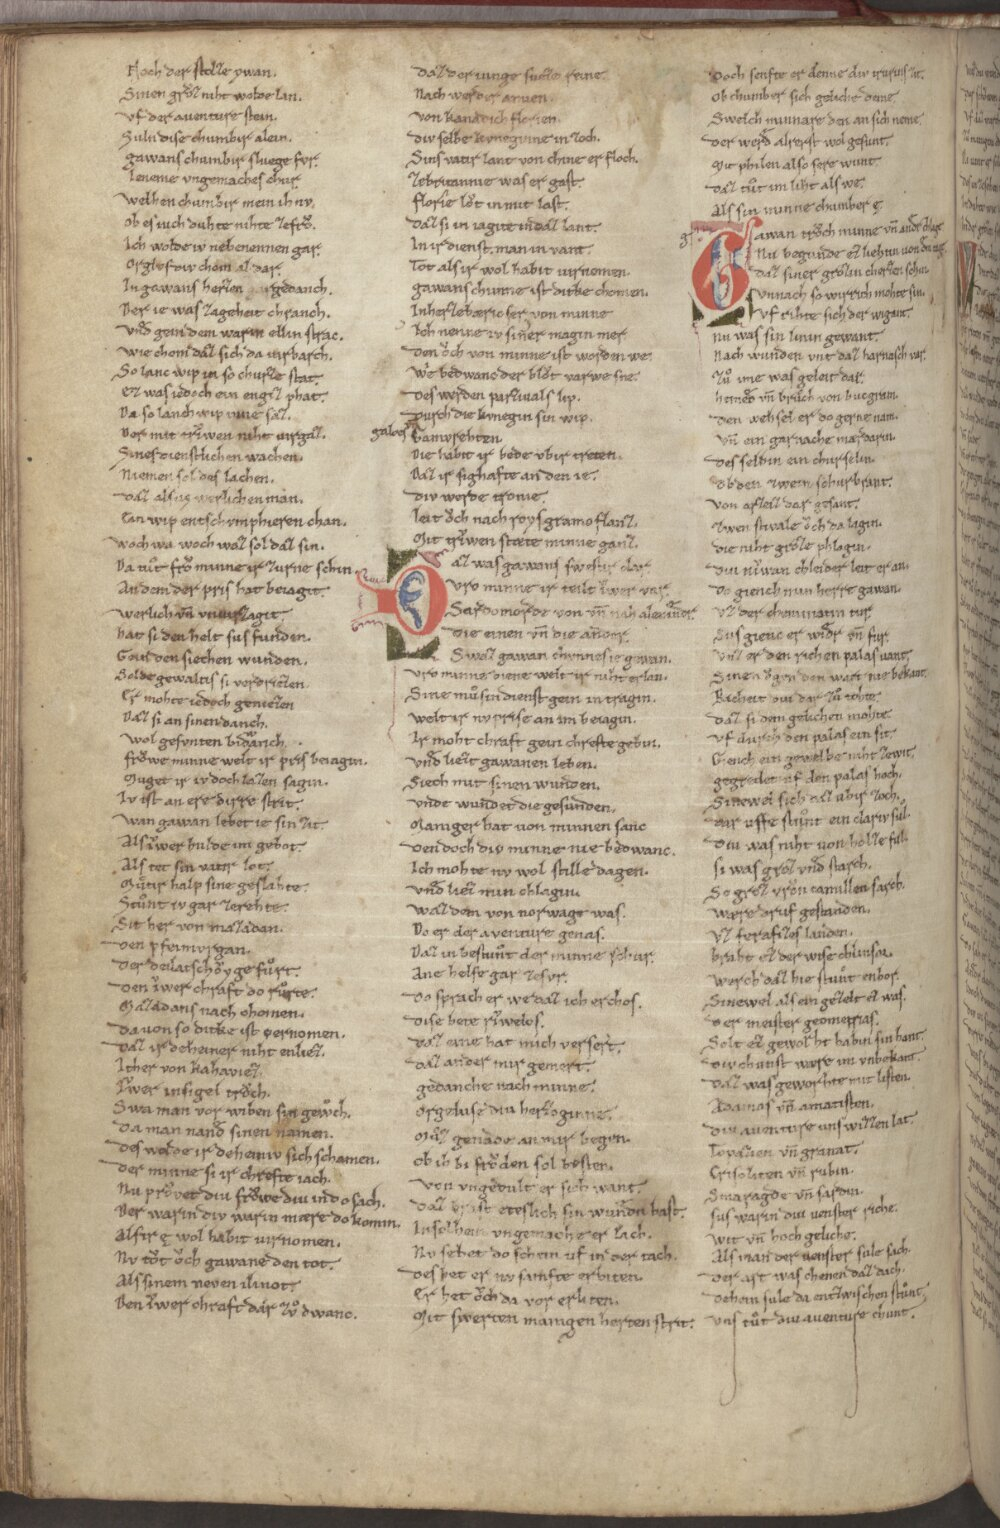 Noch der stolze ywan.
Sinen groz niht wolde lan.
Vf der auenture stein.
Zuln dise chumbir alein.
gawans chumbir sluege fur.
leneme vngemaches chur.
Welhen chumbir mein ih nv.
Ob es iuch duhte nihte zefrv̊.
Ich woldew iv nebenennen gar.
Orgelos div chom al dar.
In gawans herzen gedanch.
Der ie was zageheit chranch.
Vnd gein dem warin ellin strac.
Wie chom daz sich da uirbarch.
So lanc wip in so churze stat.
Ez was iedoch ein engiz phat.
Da so lanch wip inne saz.
Der mit trîwen niht uirgaz.
Sines dienstlichen wachen.
Niemen sol des lachen.
Daz alsus werlichen man.
Ein wip entschvmphieren chan.
Woch wa woch waz sol daz sin.
Da tůt frov minne ir zurne schin.
An dem der pris hat beiagit.
werlich vñ vnuirzagit.
hat si den helt sus funden.
Gein den siechen wunden.
Solde gewaltis si verdriezen.
Er mohte iedoch geniezen
Daz si an sinen danch.
Wol gesvnten bidranch.
frôwe minne welt ir pris beiagin.
Muget ir iv doch lazen sagin.
Iv ist an ere dirre strit.
Wan gawan lebet ie sin zit.
Als îwer hulde im gebot.
Als tet sin vatir lot.
Mûtir halp sine geslahte.
Stůnt iv gar zerehte.
Sit her von mazadan.
Den pfeimorgan.
Der delatschôyge fůrt.
Den îwer chraft do růrte.
Mazadans nach chomen.
Da von so dicke ist vernomen.
Daz ir deheiner niht enliez.
Ither von kahaviez.
Îwer insigel trôch.
Swa man vor wiben sin gewôch.
Da man nand sinen namen.
Des wolde ir deheiniv sich schamen.
Der minne si ir chrefte iach.
Nu prôvet diu frôwe diu in do sach.
Der warin div warin mære do komin.
Als ir ê wol habit uirnomen.
Nv tôt ôch gawane den tot.
Als sinem neven ilinot.
Den îwer chraft dar zů dwanc.
Daz der iunge suoze reine.
Nach werder amien.
Von kanadich florien.
Div selbe kvneginne in zoch.
Sins vatir lant von chine er floch.
Zebritannie was er gast.
florie lôt in mit last.
Daz si in iagite in daz lant.
In ir dienst man in vant.
Tot als ir wol habit uirnemen.
gawans chunne ist dicke chomen.
In herzebæric ser von minne
Ich nenne iv siner magin mer
Den ôch von minne ist worden we.
We bedwanc der blôt varwe sne.
Des werden parzivals lip.
Durch die kvnegin sin wip.
galoes vñ Gamvrehten
Die habit ir bede vbir treten.
Daz ir sighafte an den ie.
Div werde itonie.
leit ôch nach roys gramoflanz.
Mit trîwen stæte minne ganz.
Daz was gawans swestir clar.
Vro minne ir teilt îwer var.
Surdamorde von vñ nah alexander.
Die einen vñ die ander.
Swaz gawan chvnnes ie gewan.
Vro minne diene welt ir niht erlan.
Sine můsin dienst gein iv tragin.
Welt ir nv prise an im beiagin.
Ir moht chraft gein chrefte gebin.
Vnd liezt gawanen leben.
Siech mit sinen wunden.
Vnde wundet die gesunden.
Maniger hat von minnen sanc
Den doch div minne nie bedwanc.
Ich mohte nv wol stille dagen.
Vnd liezt min chlagin.
Waz dem von norwage was.
Do er der aventure genas.
Daz in bestůnt der minne schur.
Ane helfe gar zesvr.
Do sprach er we daz ich erchos.
Dise bete rîwelos.
Daz eine hat mich verseret.
Daz ander mir gemert.
gedanche nach minne.
Orgeluse diu herzoginne.
Můz genade an mir began.
Ob ih bi frôden sol bestan.
Von vngedult er sich want.
Daz brast eteslich sin wunden bast.
In solhem vngemache er lach.
Nv sehet do schein vf in der tach.
Des het er nv sunfte erbiten.
Er het ôch da vor erliten.
Mit swerten manigen herten strit.
Doch senfte er denne div truris zit.
Ob chumber sich geliche deme.
Swelch minnare den an sich neme.
Der werd alrerst wol gesunt.
Mit philen also sere wunt.
Daz tůt im liht als we.
Als sin minne chumber ê
Gawan trôch minne vñ ander chlage
Nu begunde ez liehtin von dem tage.
Daz siner grozin cherzen schin.
Vnnach so wirrich mohte sin.
Vf rihte sich der wigant.
Nu was sin linin gewant.
Nach wunden vnt daz harnasch var.
Zů ime was geleit dar.
hemed vñ brůch von bucgram.
Den wehsel er do gerne nam.
Vñ ein garnache mardarin.
Des selbin ein chursetin.
Ob den zwein schurbrant.
Von arseil dar gesant.
Zwen stivale ôch da lagin.
Die niht groze phlogin.
Diu nîwan chleider leit er an.
Do giench min herre gawan.
Vz der cheminatin tur.
Sus gienc er widr vñ fur.
Vnz er den richen palas vant.
Sinen ôgen den wart nie bekant.
Richeit diu dar zů tohte
Daz si dem gelichen mohte.
Vf durch den palas ein sit.
Gench ein gewelbe niht zewit.
gegredet vf den palas hoch.
Sinewel sich daz vbir zoch.
Dar vffe stůnt ein clariv sul.
Diu was niht von holze ful.
Si was groz vnd starch.
So groz vrôn camillen sarch.
Wære druf gestanden.
Vz ferafizes landen.
Braht ez der wise chlinsor.
Werch daz hie stůnt enbor.
Sinewel als ein gezelt ez was.
Der meister geometras.
Solt ez geworht habin sin hant.
Div chunst ware im vnbekant.
Daz was geworhte mit listen.
Adamas vñ amatisten.
Diu auenture uns wizzen lat.
Topazien vñ granat.
Crisoliten vñ rubin.
Smaragde vñ sardin.
Sus warin diu venster riche.
Wit vñ hoch geliche.
Als man der venster sule sich.
Der art was obenen daz dach.
Dehein sule da entzwischen stůnt,
Vns tůt diu auenture chunt.